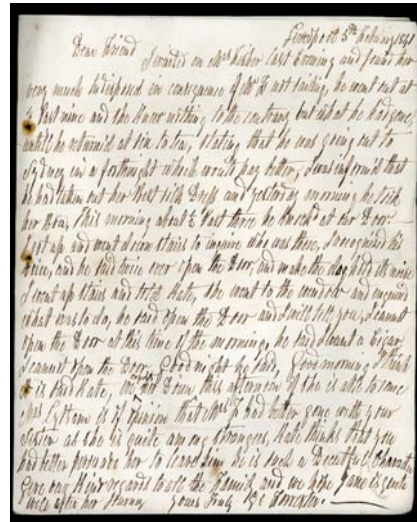 Liverpool 5th February 1841
Dear Friend
I waited on Mrs Fisher last Evening and found her
very much Indisposed in consequence of Mr F not sailing, he went out at
½ Past nine and she knew nothing to the contrary but what he had gone,
untill he returned at six to ten, stating that he was going out to
Sydney in a fortnight which would pay better, I was informd that
he had taken out her Best silk Dress and yesterday morning he took
her Boa, This morning about ½ Past three he knockd at our Door
I got up and went down stairs to inquire who was there, I recognized his
voice, and he said twice over open the Door, and make the dog hold its noise
I went up stairs and told Kate, she went to the window and enquired
what was to do, he said open the Door and I will tell you, I cannot
open the Door at this time of the morning, he said I want a Cigar,
I cannot open the Door, Good night he said, Good morning I think
it is said Kate, Mrs F Down this afternoon if she is able to come
Mrs Lytham is of opinion that Mrs F had better gone with your
Sister as she is quite among strangers, Kate thinks that you
had better persuade her to leave him he is such a Deceitful Character
Give my Kind regards to all the Family and we hope Jane is quite
well after her Journey Yours Truly